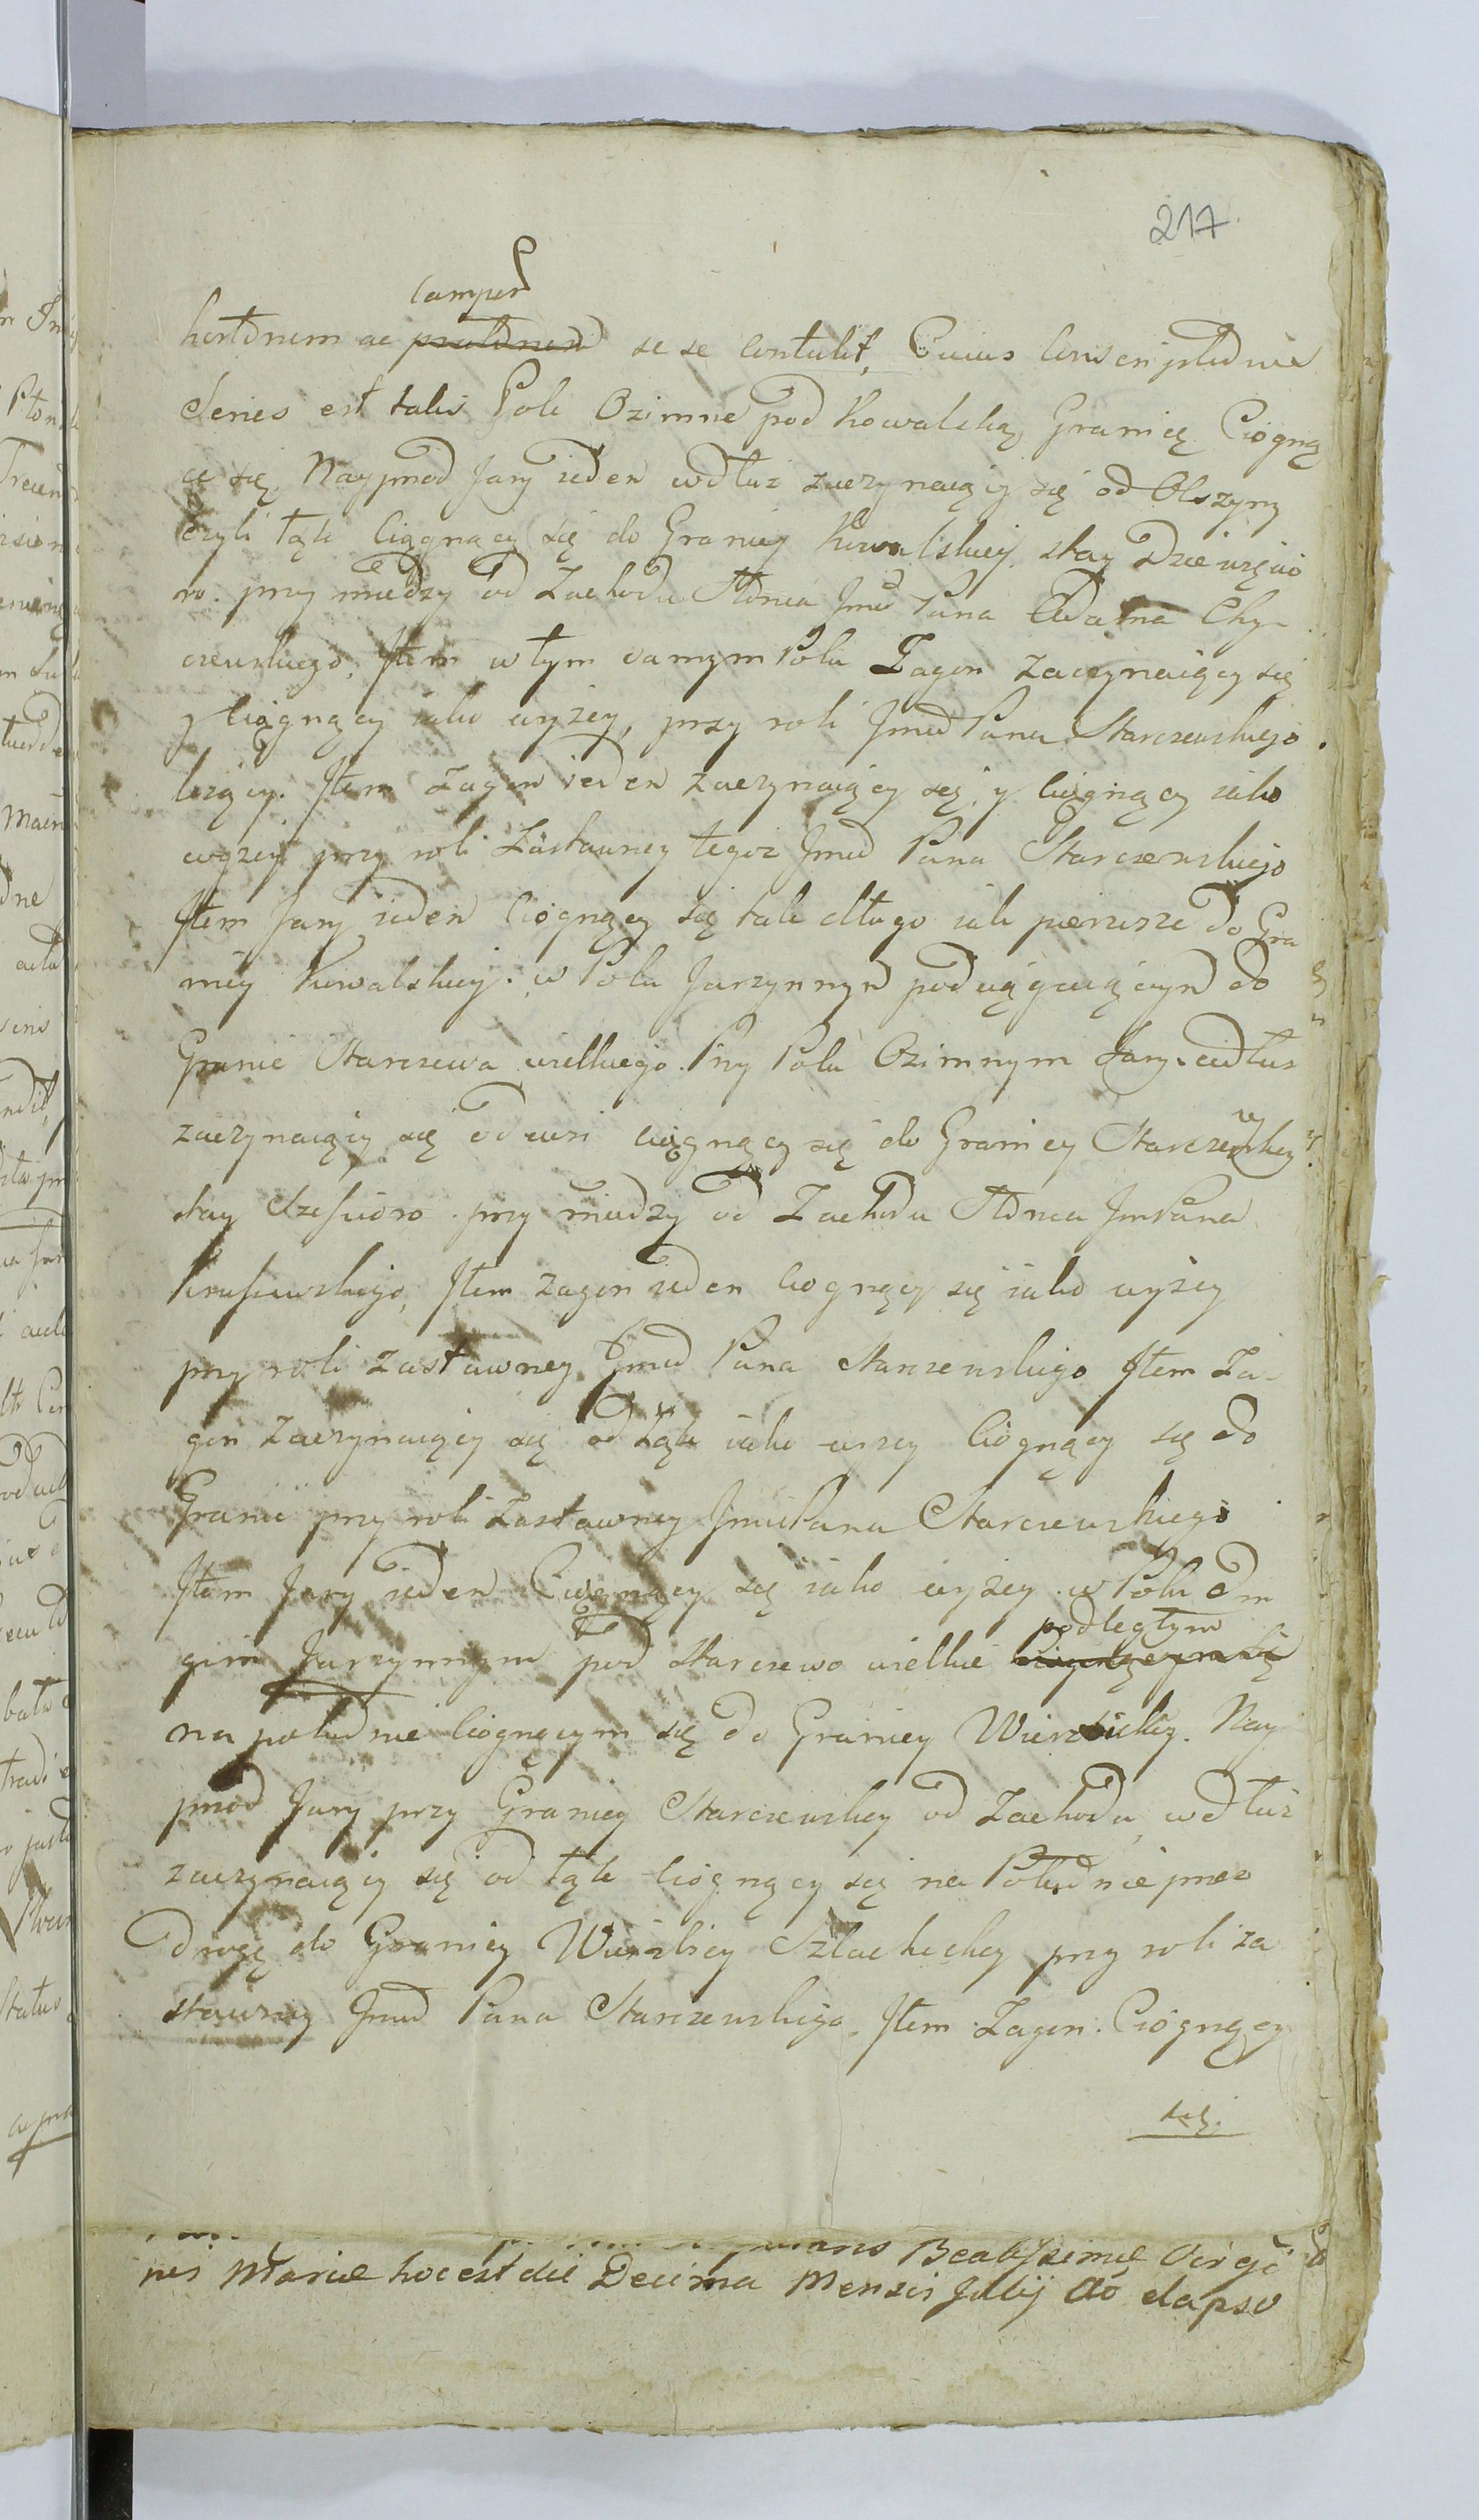 217.
camporū
hortorum ac pratorum se se contulit, Cuius Conscriptionis
Series est talis Pole Ozimne pod Kowalską Granicą Ciogną
ce się, Nayprzod Jary ieden wdłuż zaczynaiący się od Olszyny
czyli łąk Ciągnący się do Granicy Kowalskiey, stay Dziewięcio
ro. przy miedzy od Zachodu Słońca Jmć Pana Adama Chy-
czewskiego, Item w tym samym Polu Zagon zaczynaiący się
y Ciągnący iako wyżey, przy roli Jmć Pana Starczewskiego
leżący. Item Zagon ieden zaczynaiący się, y Ciągnący iako
wyżey przy roli Zastawney tegoż Jmć Pana Starczewskiego
Item Jary ieden Ciognący się tak długo iak pierwsze do Gra
nicy Kowalskiey. w Polu Jarzynnym pod ciągaiącym do
Granic Starczewa wielkiego. Przy Polu Ozimnym Jary wdłuż
zaczynaiący się od wsi ciągnący się do Granicy Starczewskiey
stay Sześcioro. przy miedzy od Zachodu Słońca Jm Pana
Krusiewskiego, Item zagon ieden Ciognący się iako wyżey
przy roli zastawney Jmć Pana Starczewskiego Item Za-
gon Zaczynaiący się od Łąk iako wyżey Ciognący się do
Granic przy roli Zastawney Jmć Pana Starczewskiego
Item Jary ieden Ciągnący się iako wyżey. w Polu dru
podległym
gim Jarzynnym pod Starczewo wielkie ciągnącym się
na południe Ciognącym się do Granicy Wierzbickiey. Nay
przod Jary przy Granicy Starczewskiey od Zachodu, wdłuż
zaczynaiący się od łąk Ciognący się na Południe przez
Drogę do Granicy Wierzbicy Szlacheckiey przy roli za
stawney Jmć Pana Starczewskiego, Item Zagon. Ciognący
się.
Beatissimę Virgi
nis Mariæ hoc est die Decima Mensis Julij Ao elapso